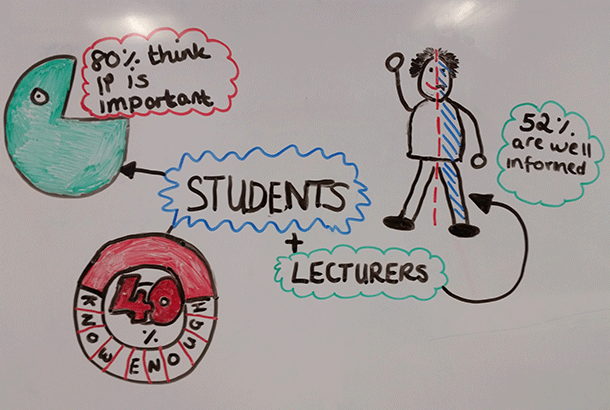 80% think
IP is
important
52%
are well
informed
STUDENTS
+
LECTURERS
40
%
KNOW ENOUGH